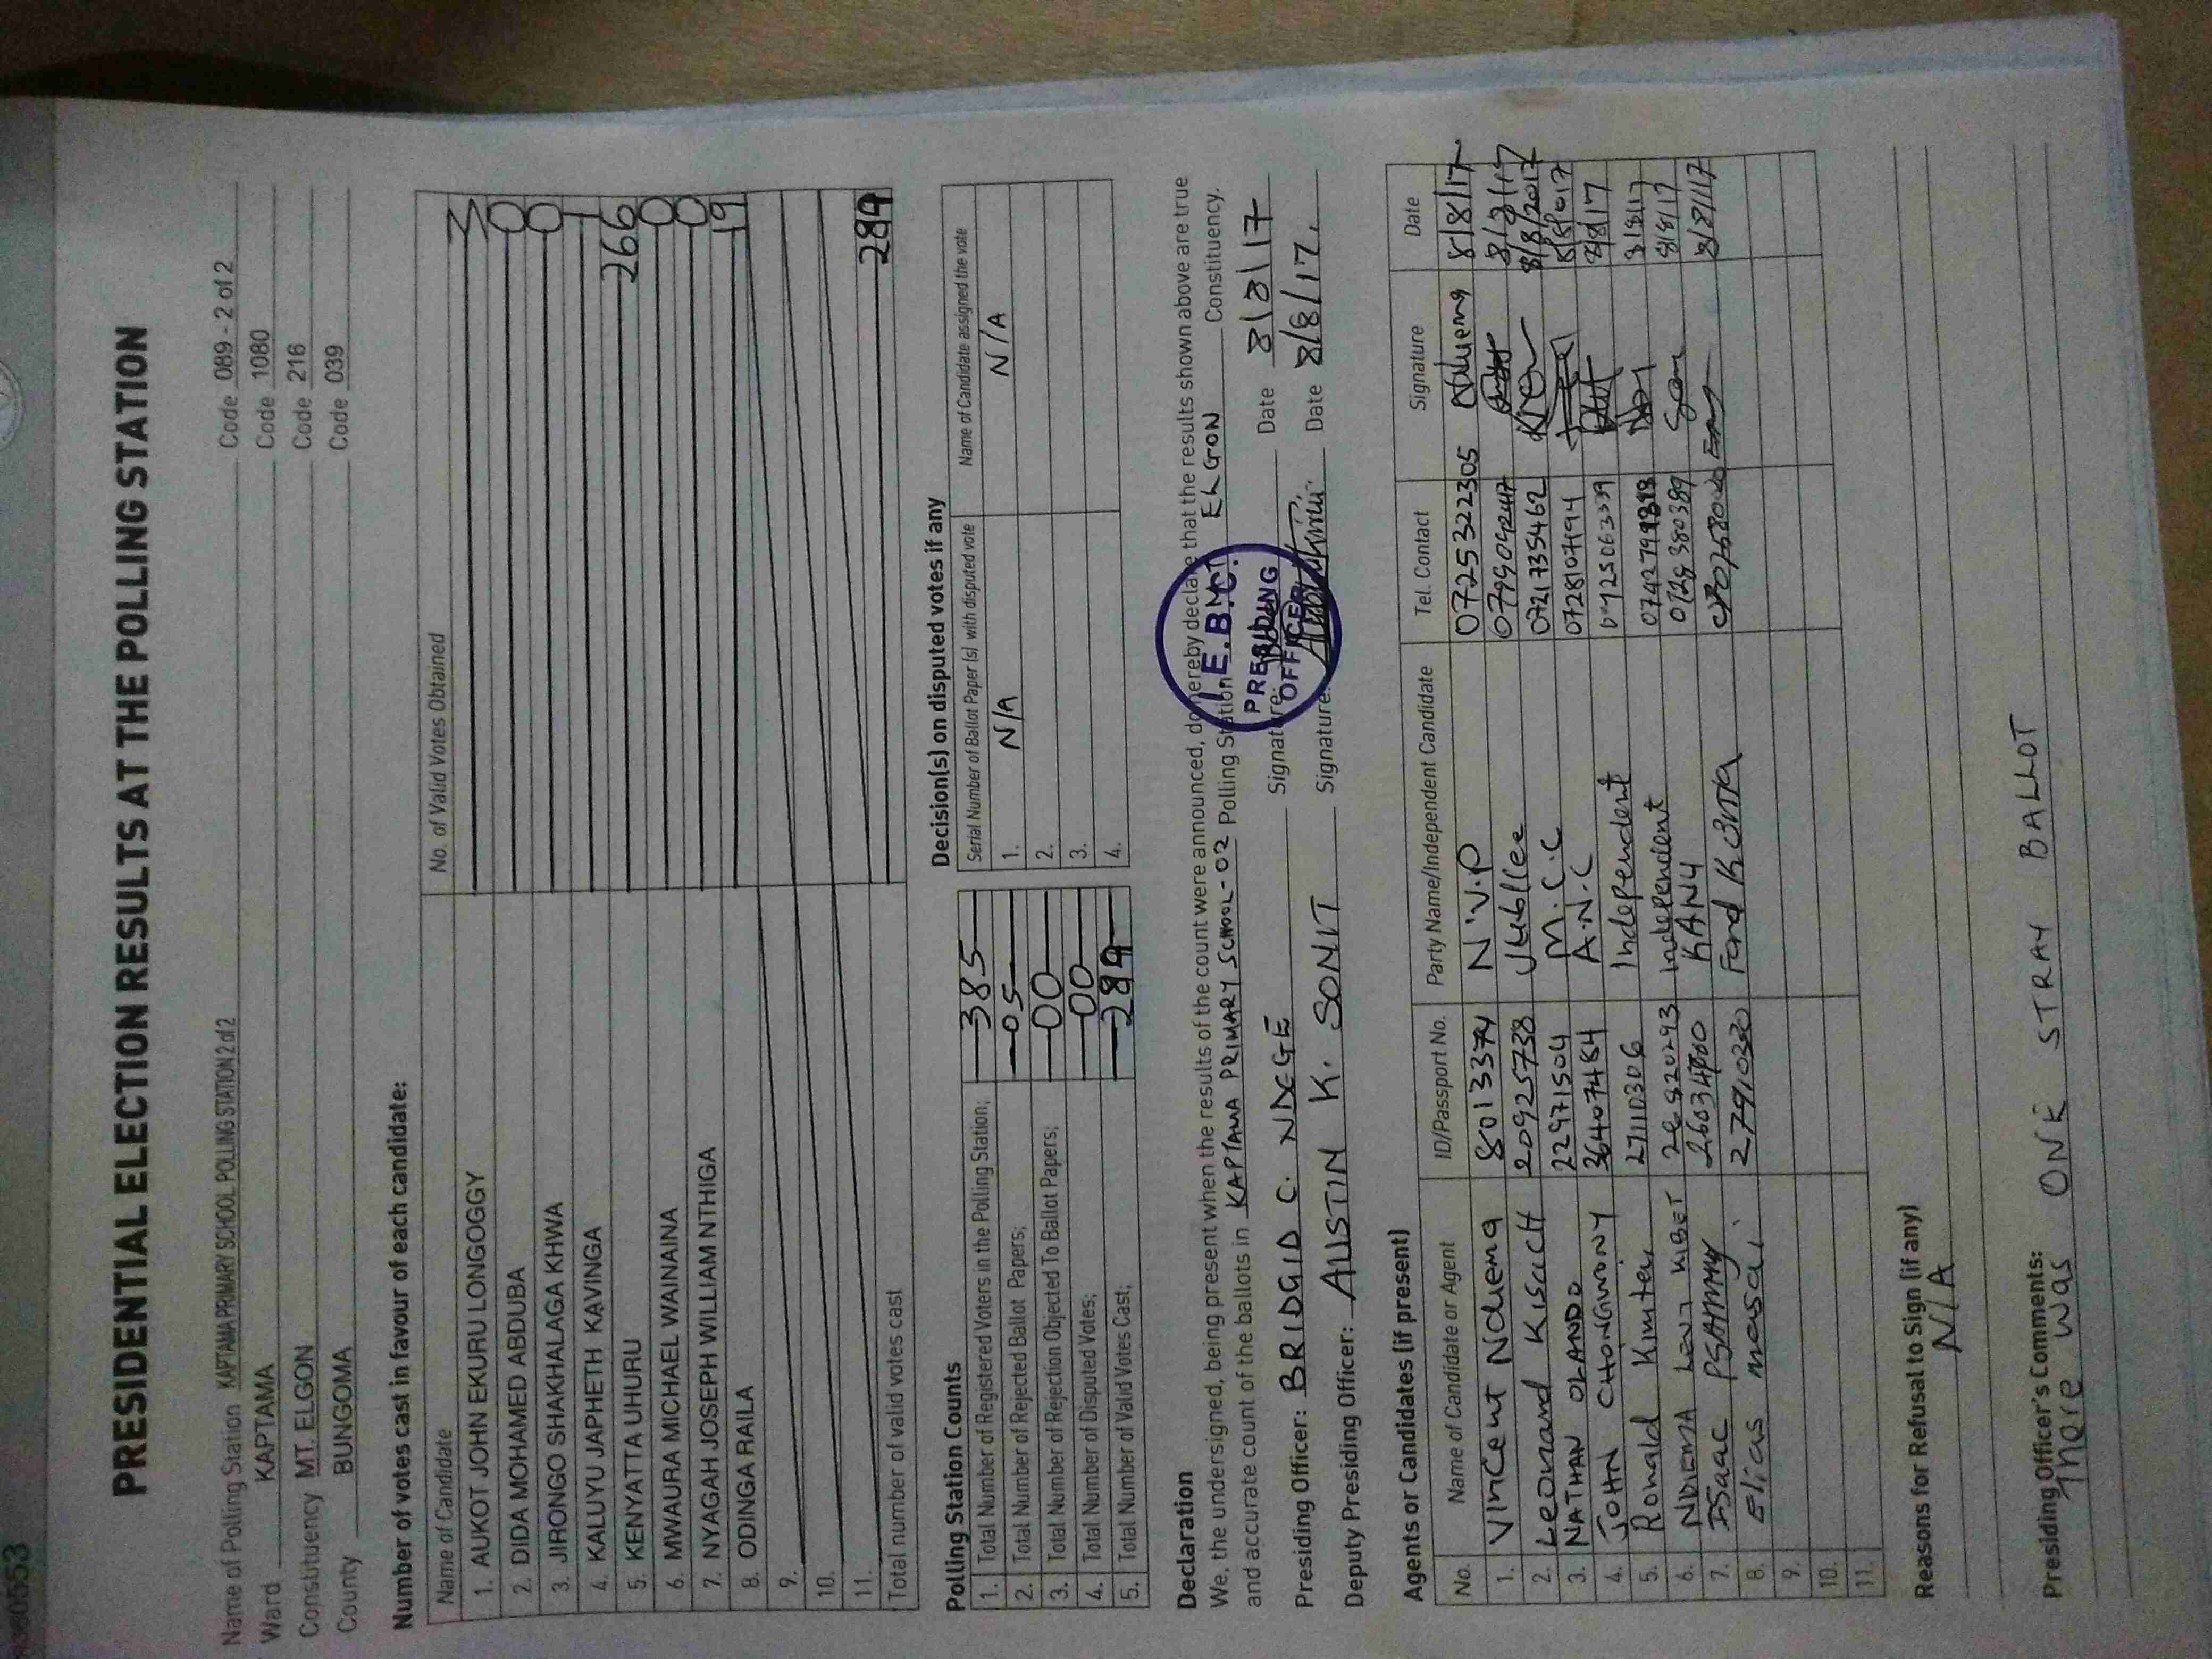 PRESIDENTIAL ELECTION RESULTS AT THE POLLING STATION
Name of Polling Station KAPTAMA PRIMARY SCHOOL POLLING STATION 2 of 2 Code 089 - 2 of 2
Ward KAPTAMA Code 1080
Constituency MT. ELGON Code 216
County BUNGOMA Code 039
Number of votes cast in favour of each candidate:
Name of Candidate No. of Valid Votes Obtained
1. AUKOT JOHN EKURU LONGOGGY 3
2. DIDA MOHAMED ABDUBA 0
3. JIRONGO SHAKHALAGA KHWA 0
4. KALUYU JAPHETH KAVINGA 1
5. KENYATTA UHURU 266
6. MWAURA MICHAEL WAINAINA 0
7. NYAGAH JOSEPH WILLIAM NTHIGA 0
8. ODINGA RAILA 19
9.
10.
11.
Total number of valid votes cast 289
Polling Station Counts
1. Total Number of Registered Voters in the Polling Station; 385
2. Total Number of Rejected Ballot Papers; 05
3. Total Number of Rejection Objected To Ballot Papers; 00
4. Total Number of Disputed Votes; 00
5. Total Number of Valid Votes Cast; 289
Decision(s) on disputed votes if any
Serial Number of Ballot Paper (s) with disputed vote Name of Candidate assigned the vote
1. N/A N/A
2.
3.
4.
Declaration
We, the undersigned, being present when the results of the count were announced, do hereby declare that the results shown above are true
and accurate count of the ballots in KAPTAMA PRIMARY SCHOOL-02 Polling Station ELGON Constituency.
Presiding Officer: BRIDGID C. NDEGE Signature: Date 8/8/17
Deputy Presiding Officer: AUSTIN K. SONIT Signature: Date 8/8/17.
I.E.B.C.
PRESIDING
OFFICER
Agents or Candidates (if present)
No. Name of Candidate or Agent ID/Passport No. Party Name/Independent Candidate Tel. Contact Signature Date
1. Vincent Ndiema 8013374 N.V.P 0725322305 8/8/17
2. Leonard Kisach 20925738 Jubilee 8/8/17
3. NATHAN OLANDO 22971504 M.C.C 0721735462 8/8/2017
4. JOHN CHONGWONY 36407484 A.N.C 0728107194 8/8/2017
5. Ronald Kimutai 27110306 Independent 0725063339 8/8/17
6. NDIEMA Levi KIBET Independent 8/8/17
7. Isaac KANU 0728380389 8/8/17
8. Elias masai 8/8/17
9.
10.
11.
Reasons for Refusal to Sign (if any)
N/A
Presiding Officer's Comments:
There was ONE STRAY BALLOT